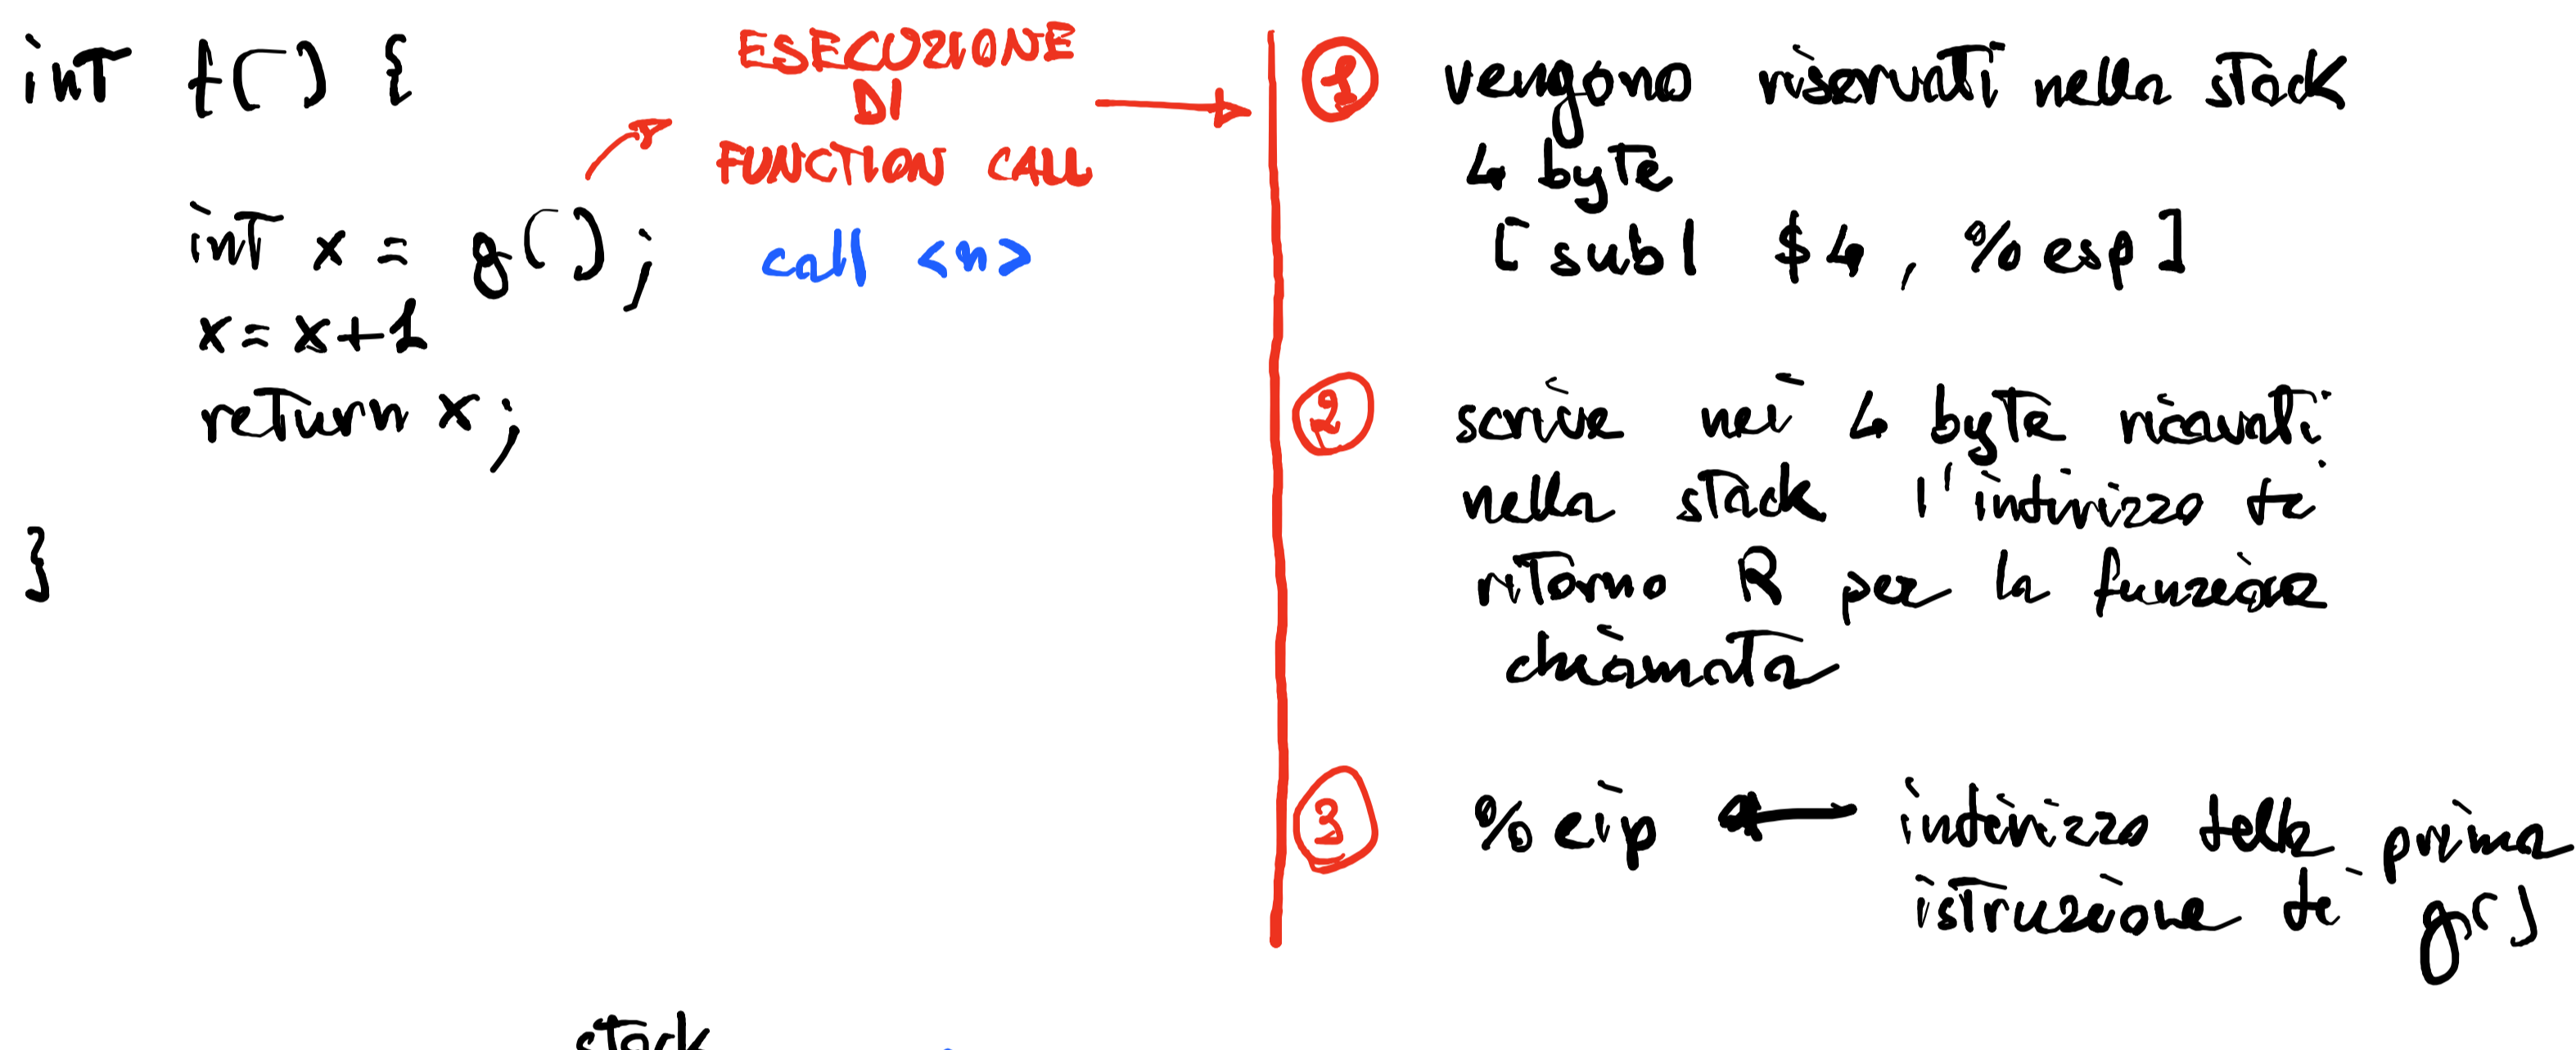 int f() {
int x = g();
x = x+1
return x;
}
ESECUZIONE
DI
FUNCTION CALL
call <n>
1 vengono riservati nella stack
4 byte
[subl $4, %esp]
2 scrive nei 4 byte ricavati
nella stack l'indirizzo di
ritorno R per la funzione
chiamata
3 %eip ← indirizzo della prima
istruzione di g()
stack